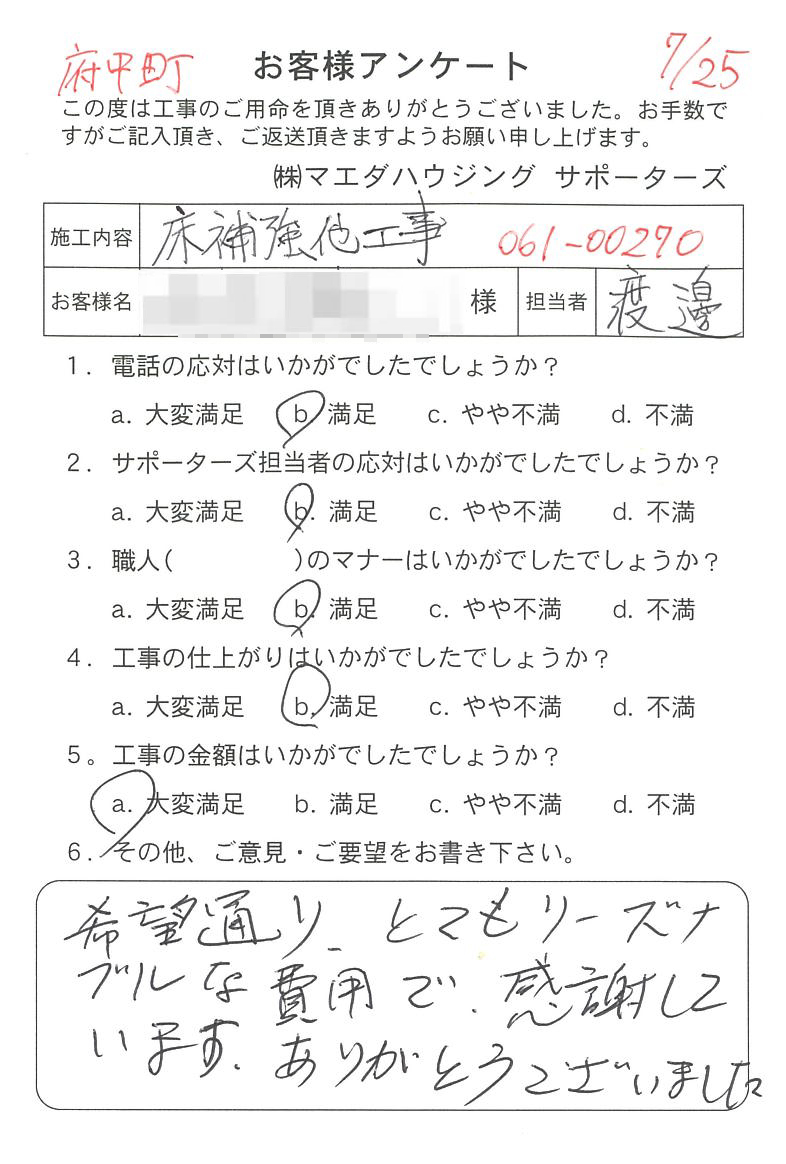 府中町 お客様アンケート 7/25
この度は工事のご用命を頂きありがとうございました。お手数で
すがご記入頂き、ご返送頂きますようお願い申し上げます。
㈱マエダハウジング サポーターズ
施工内容 床補強他工事 061-00270
お客様名 様 担当者 渡邊
1. 電話の応対はいかがでしたでしょうか？
a. 大変満足 b. 満足 c. やや不満 d. 不満
2. サポーターズ担当者の応対はいかがでしたでしょうか？
a. 大変満足 b. 満足 c. やや不満 d. 不満
3. 職人( )のマナーはいかがでしたでしょうか？
a. 大変満足 b. 満足 c. やや不満 d. 不満
4. 工事の仕上がりはいかがでしたでしょうか？
a. 大変満足 b. 満足 c. やや不満 d. 不満
5。工事の金額はいかがでしたでしょうか？
a. 大変満足 b. 満足 c. やや不満 d. 不満
6. その他、ご意見・ご要望をお書き下さい。
希望通り、とてもリーズナ
ブルな費用で、感謝して
います。ありがとうございました